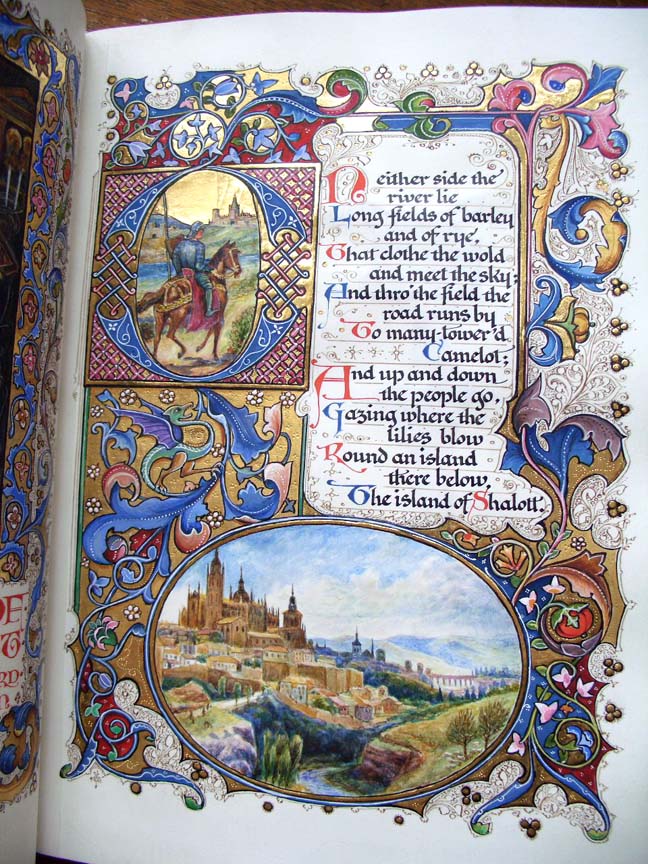 ON either side the
river lie
Long fields of barley
and of rye,
That clothe the wold
and meet the sky;
And thro' the field the
road runs by
To many-tower'd
Camelot;
And up and down
the people go,
Gazing where the
lilies blow
Round an island
there below,
The island of Shalott.